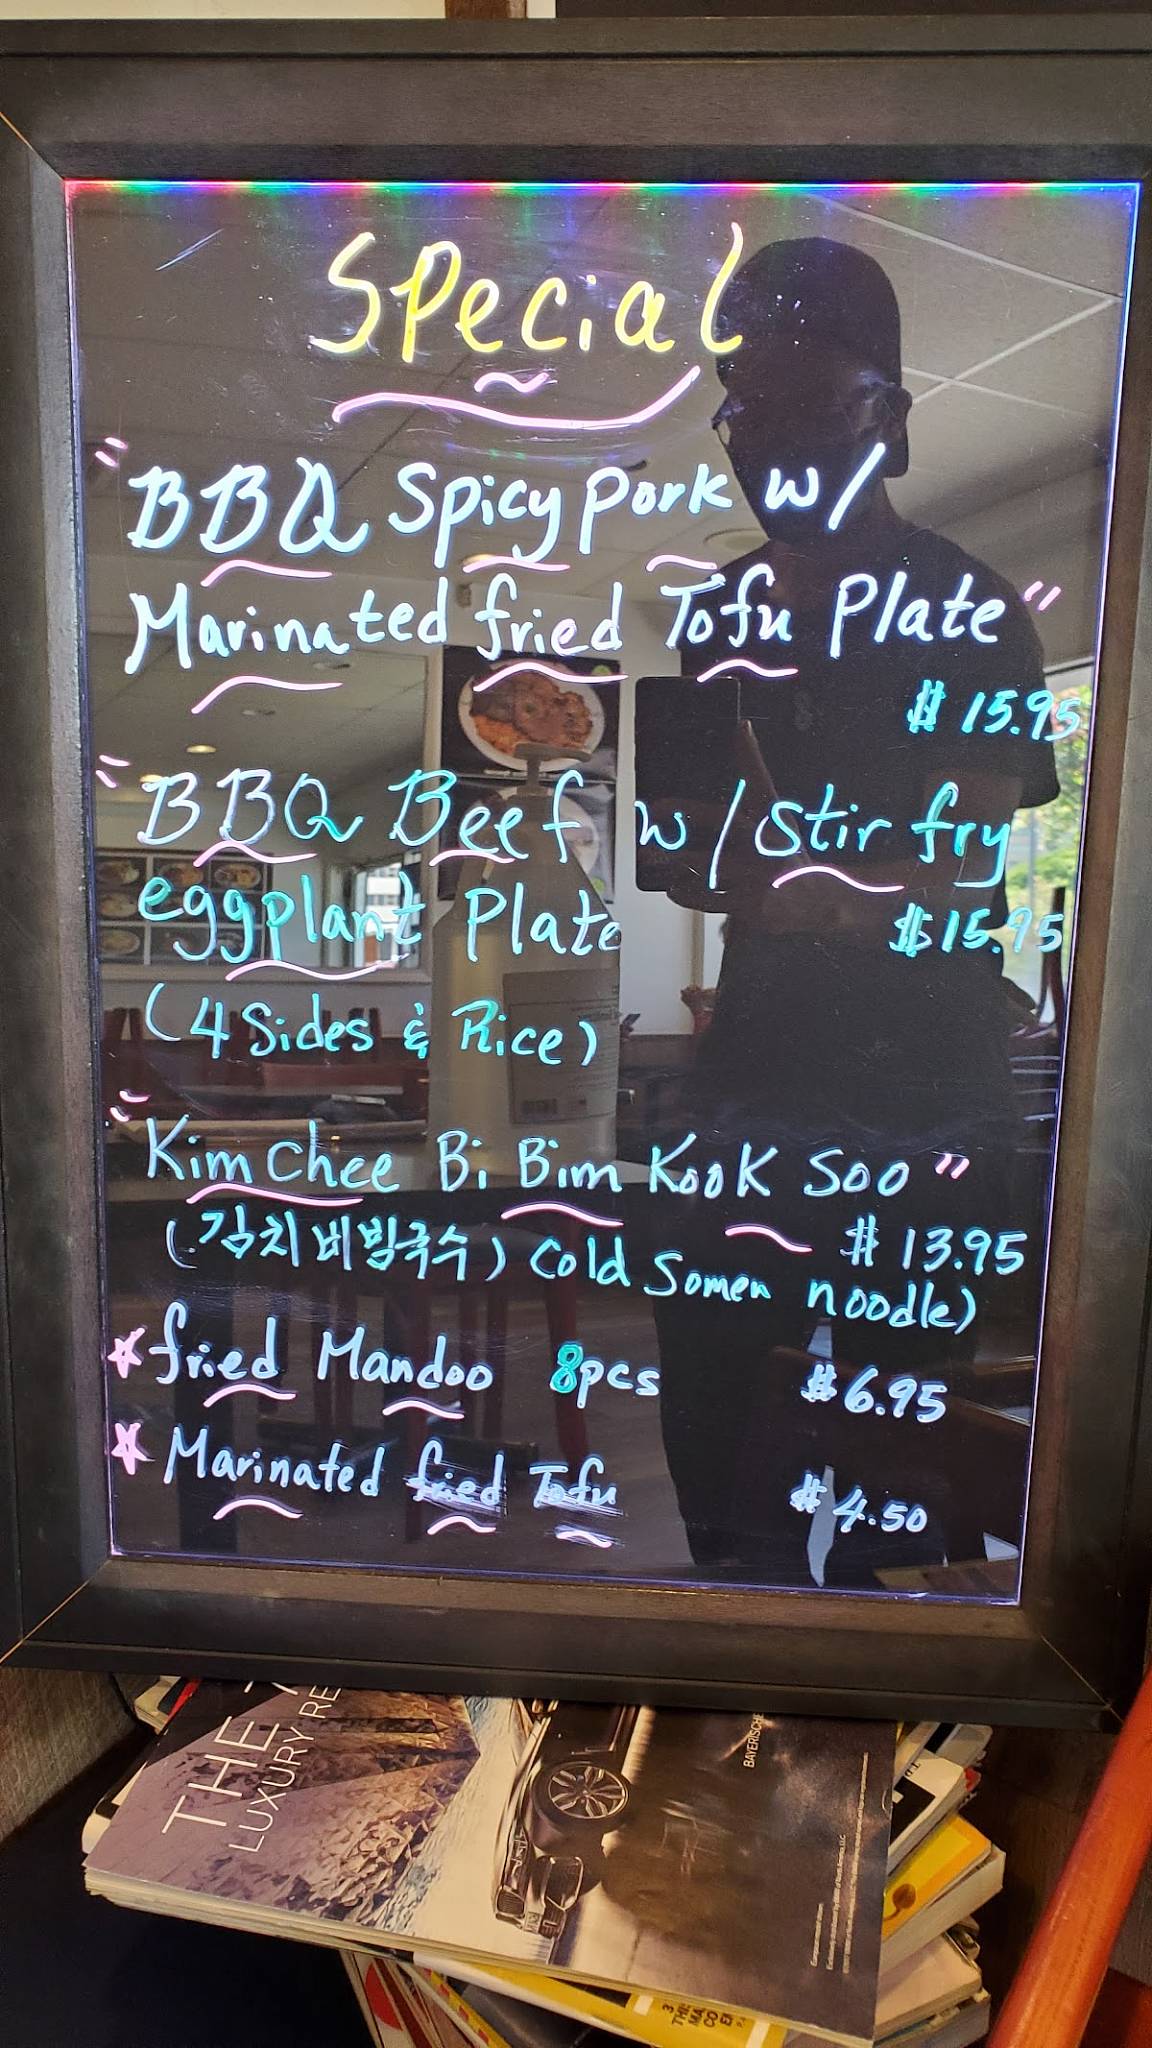 Special
"BBQ Spicy Pork w/
Marinated fried Tofu Plate"
$15.95
"BBQ Beef w/ Stir fry
eggplant Plate $15.95
(4 Sides & Rice)
"Kim chee Bi Bim Kook Soo"
$13.95
(김치비빔국수) Cold Somen noodle)
fried Mandoo 8pcs $6.95
Marinated fried Tofu $4.50
THE
LUXURY RE
BAYERISCHE